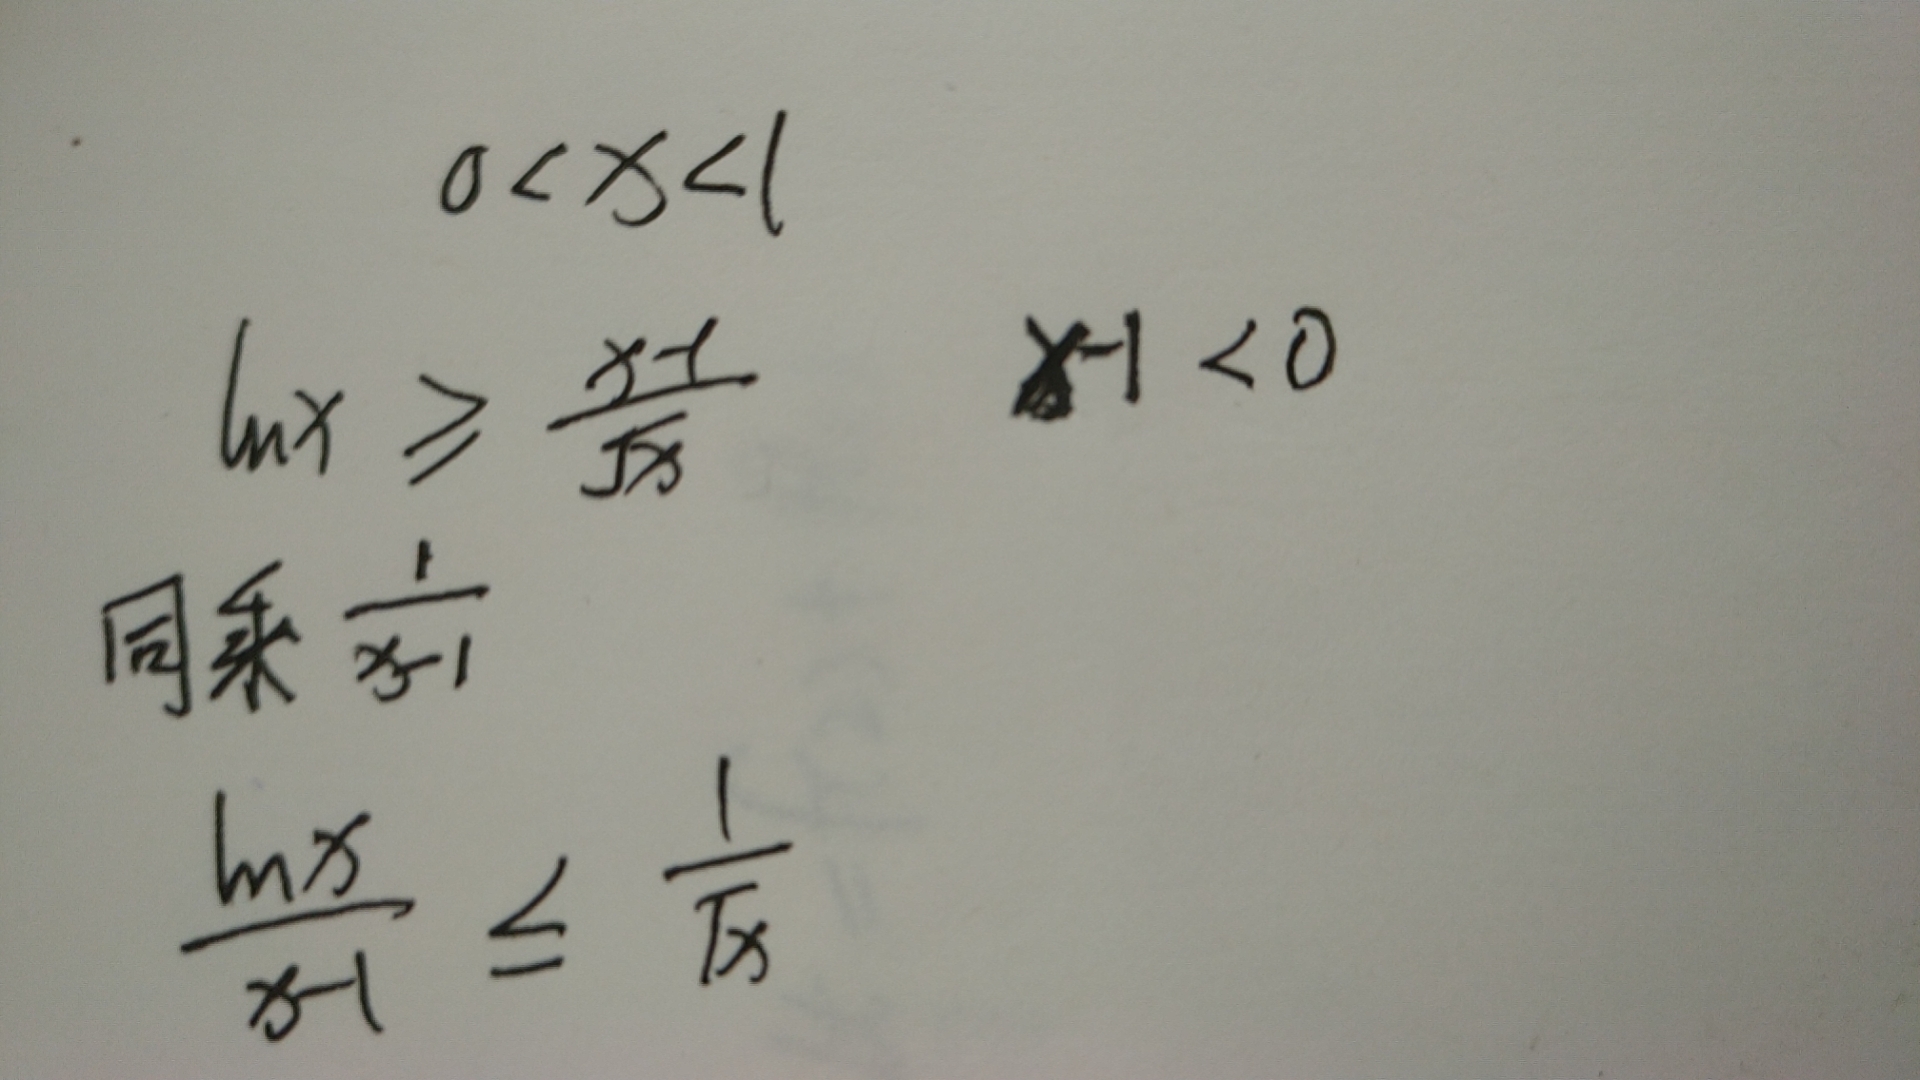 0<x<1
lnx ≥ \frac{x-1}{\sqrt{x}} x-1<0
同乘 \frac{1}{x-1}
\frac{lnx}{x-1} ≤ \frac{1}{\sqrt{x}}